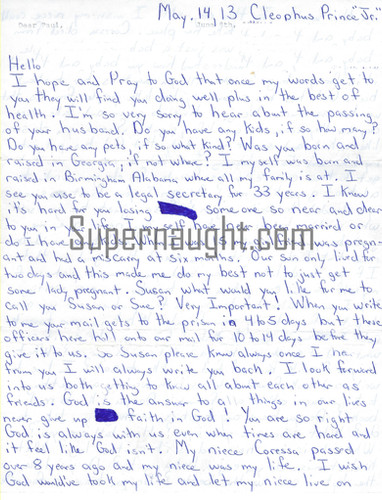 May. 14, 13 Cleophus Prince "Jr."
Hello
I hope and Pray to God that once my words get to
you they will find you doing well plus in the best of
health. I'm so very sorry to hear about the passing
of your husband. Do you have any kids, if so how many?
Do you have any pets, if so what kind? Was you born and
raised in Georgia, if not where? I myself was born and
raised in Birmingham Alabama where all my family is at. I
see you use to be a legal secretary for 33 years. I know
it's hard for you losing some one so near and dear
to you in your
Supernaught.com
do I have kids. pregn-
ant and had a at six months. Our sun only lived for
two days and this made me do my best not to just get
some lady pregnant. Susan what would you like for me to
call you Susan or Sue? Very Important! When you write
to me your mail gets to the prison in 4 to 5 days but these
officers here hill onto our mail for 10 to 14 days before they
give it to us. So Susan please know always once I hear
from you I will always write you back. I look forward
into us both getting to know all about each other as
friends. God is the answer to all things in our lives
never give up faith in God! You are so right
God is always with us even when times are hard and
it feel like God isn't. My niece Coressa passed
over 8 years ago and my niece was my life. I wish
God would've took my life and let my niece live on